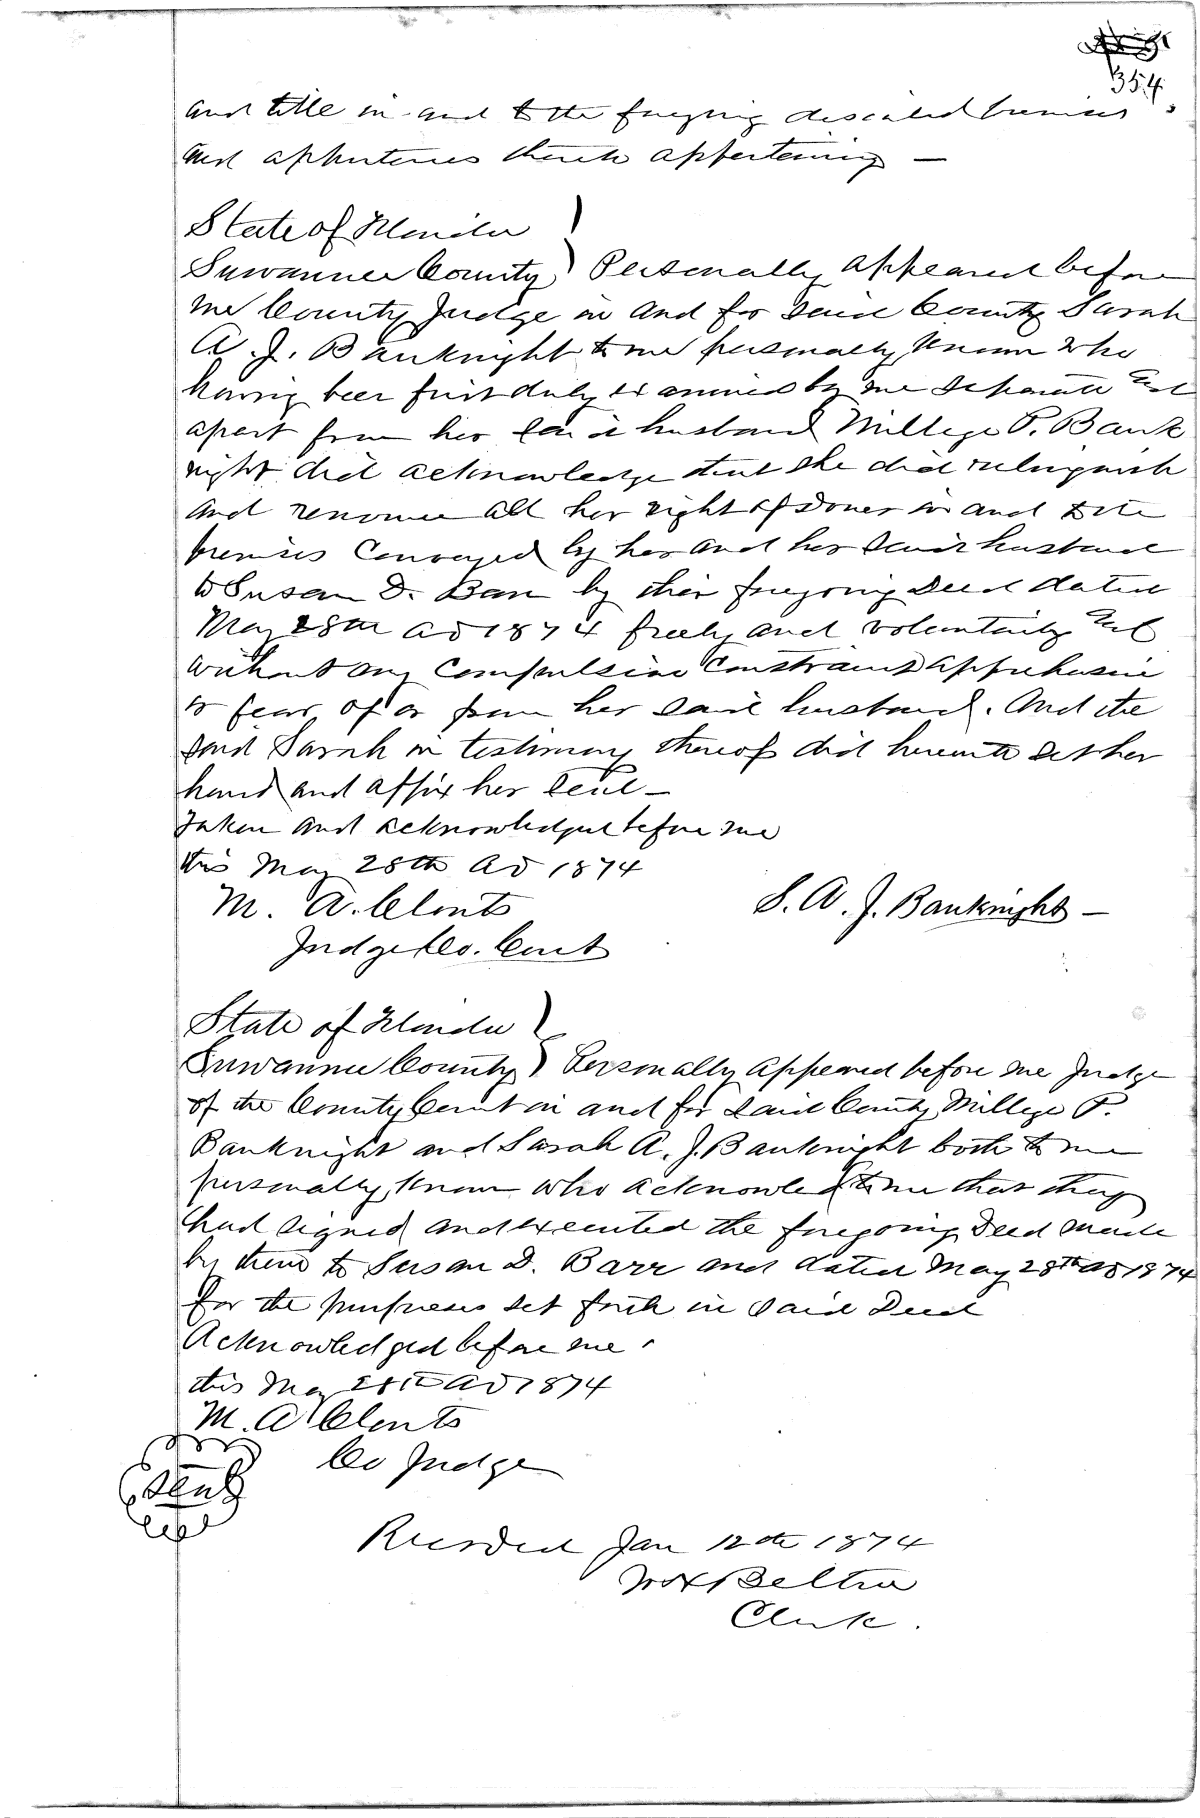 354
and title in and to the foregoing described premises
and appurtences thereto appertaining —
State of Florida )
Suwannee County ) Personally appeared before
me County Judge in and for said County Sarah
A. J. Banknight to me personally known who
having been first duly examined by me separate and
apart from her said husband Millege P. Bank
night did acknowledge that she did relinquish
and renounce all her right of Dower in and to the
premises Conveyed by her and her said husband
to Susan D. Barr by their foregoing Deed dated
May 28th AD 1874 freely and voluntarily and
without any compulsion Constraint apprehension
or fear of or from her said husband. And the
said Sarah in testimony thereof did hereunto set her
hand and affix her seal —
Taken and acknowledged before me
this May 28th AD 1874
M. A. Clonts
S. A. J. Banknight —
Judge Co. Court
State of Florida )
Suwannee County ) Personally appeared before me Judge
of the County Court in and for said County Millege P.
Banknight and Sarah A. J. Banknight both to me
personally known who acknowled to me that they
had signed and executed the foregoing Deed made
by them to Susan D. Barr and dated May 28th AD 1874
for the purposes set forth in said Deed
Acknowledged before me
this May 28th AD 1874
M. A Clonts
Co Judge
Seal
Recorded Jan 12th 1874
Clerk.